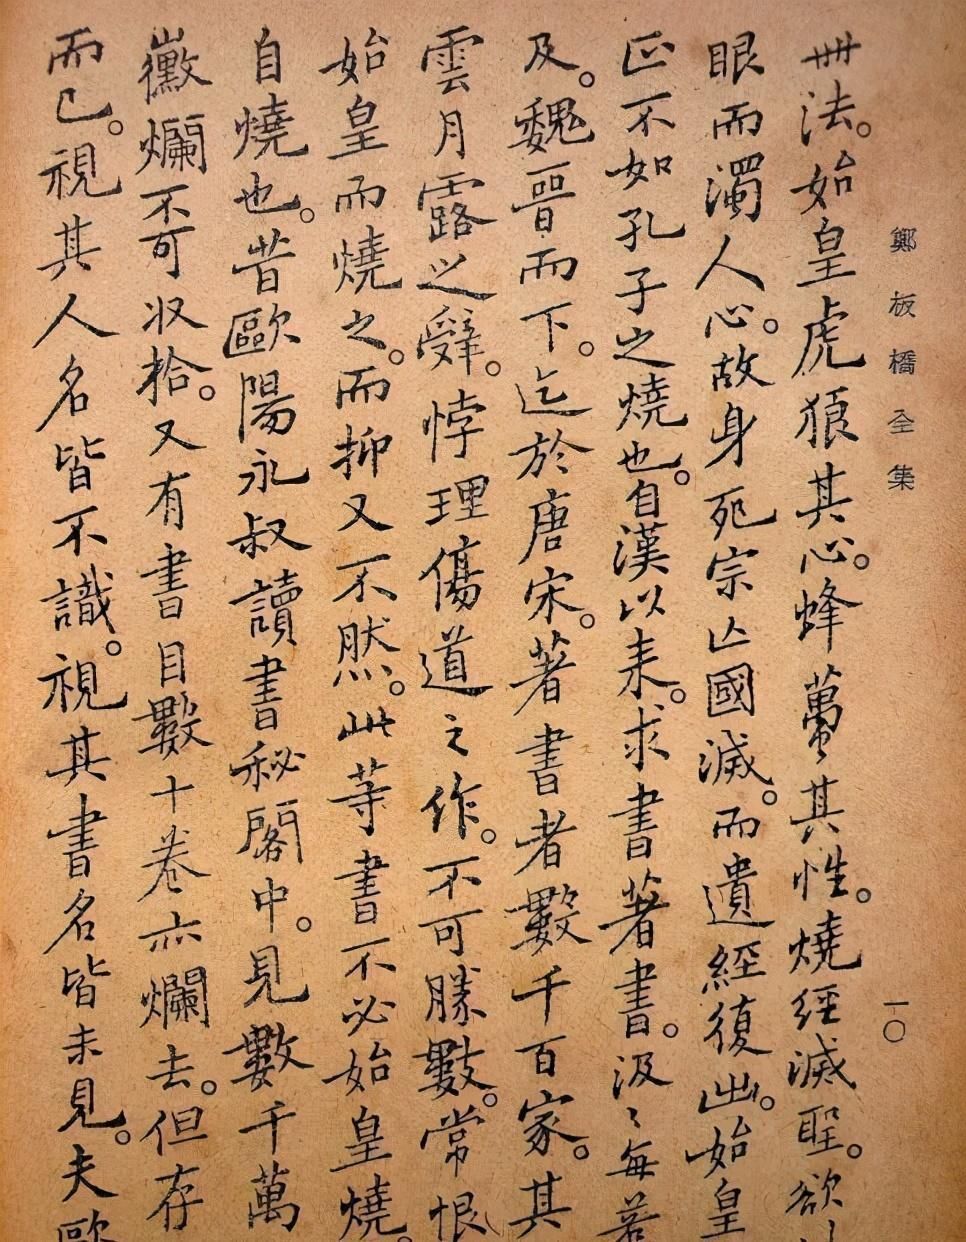 鄭板橋全集
一〇
世法。始皇虎狼其心。蜂蠆其性。燒經滅聖。欲
眼而濁人心。故身死宗亡國滅。而遺經復出。始皇
正不如孔子之燒也。自漢以来。求書著書。汲〻每若
及。魏晉而下。迄於唐宋。著書者數千百家。其
雲月露之辭。悖理傷道之作。不可勝數。常恨
始皇而燒之。而抑又不然。此等書不必始皇燒。
自燒也。昔歐陽永叔讀書秘閣中。見數千萬
黴爛不可收拾。又有書目數十卷亦爛去。但存
而已。視其人名皆不識。視其書名皆未見。夫歐